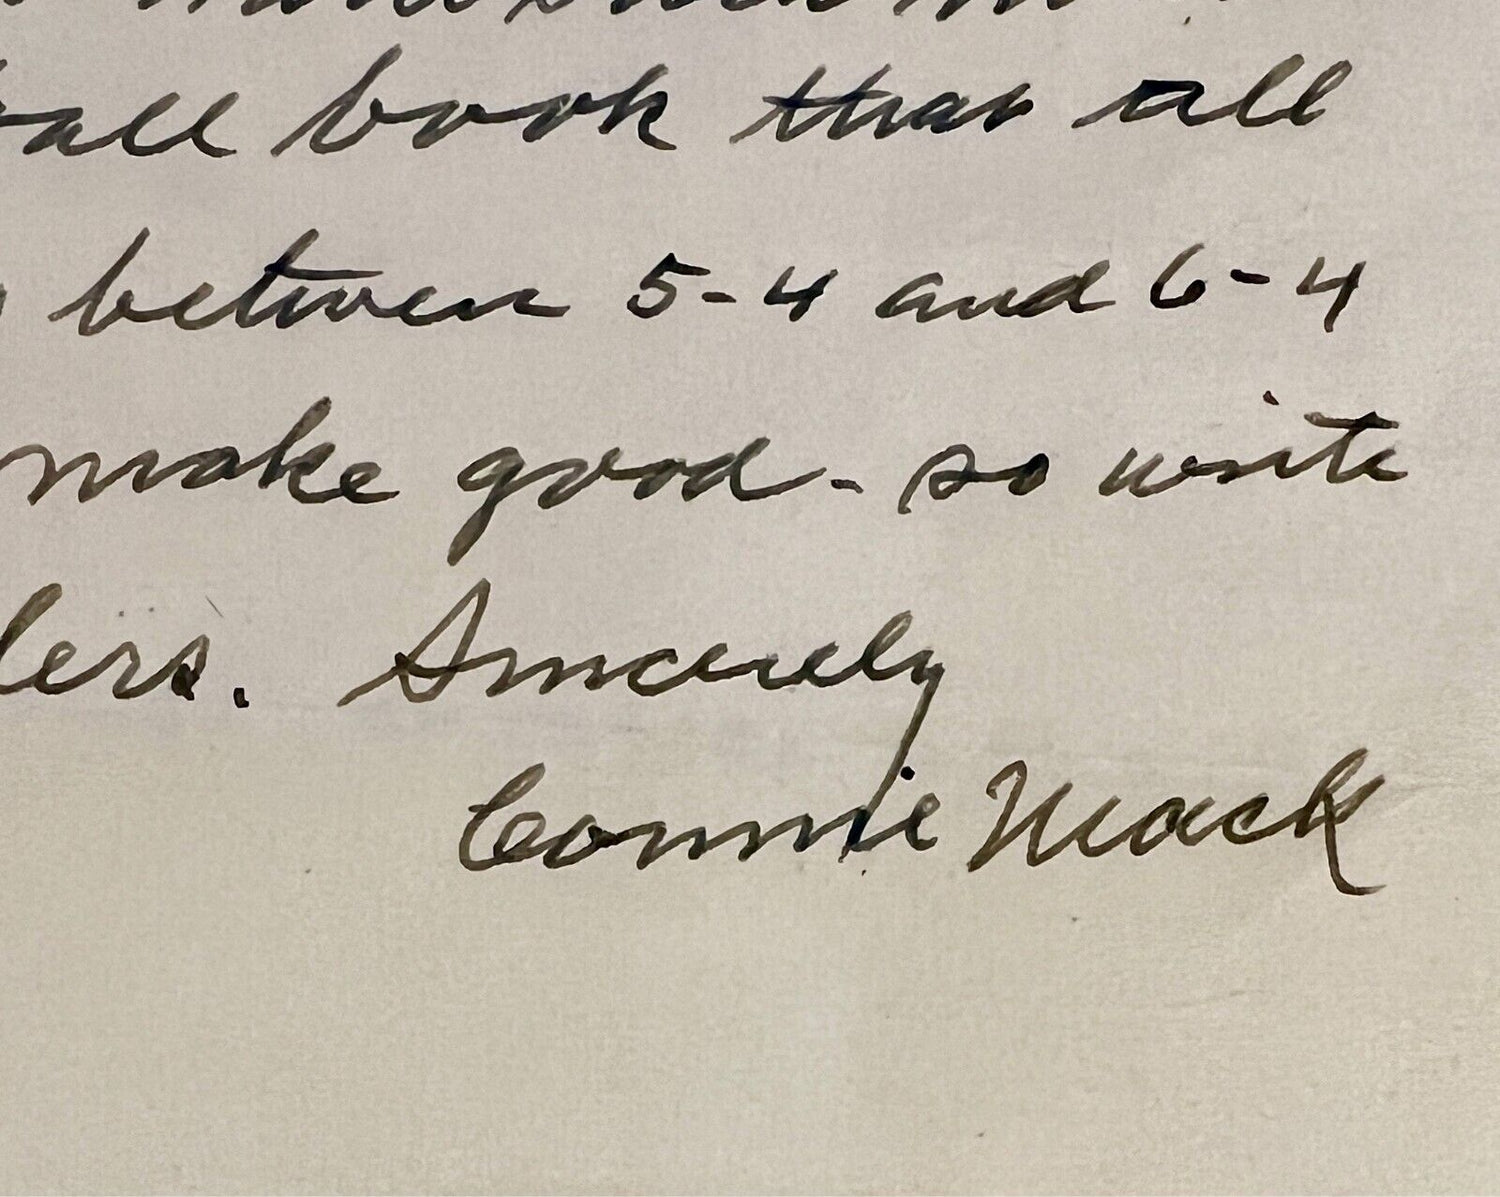 all book than all
between 5-4 and 6-4
make good - so write
lers. Sincerely
Connie Mack